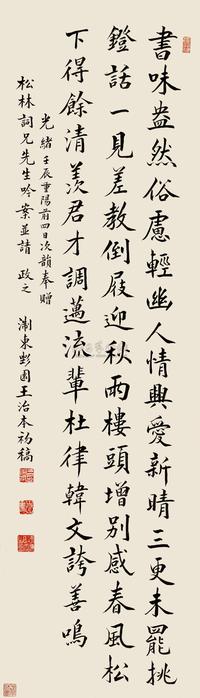 書味盎然俗慮輕幽人情興愛新晴三更未罷挑
鐙話一見差教倒屐迎秋雨樓頭增別感春風松
下得餘清羨君才調邁流輩杜律韓文誇善鳴
光緒壬辰重陽前四日次韻奉贈
松林詞兄先生吟案並請 政之
浙東彭園王治本初稿